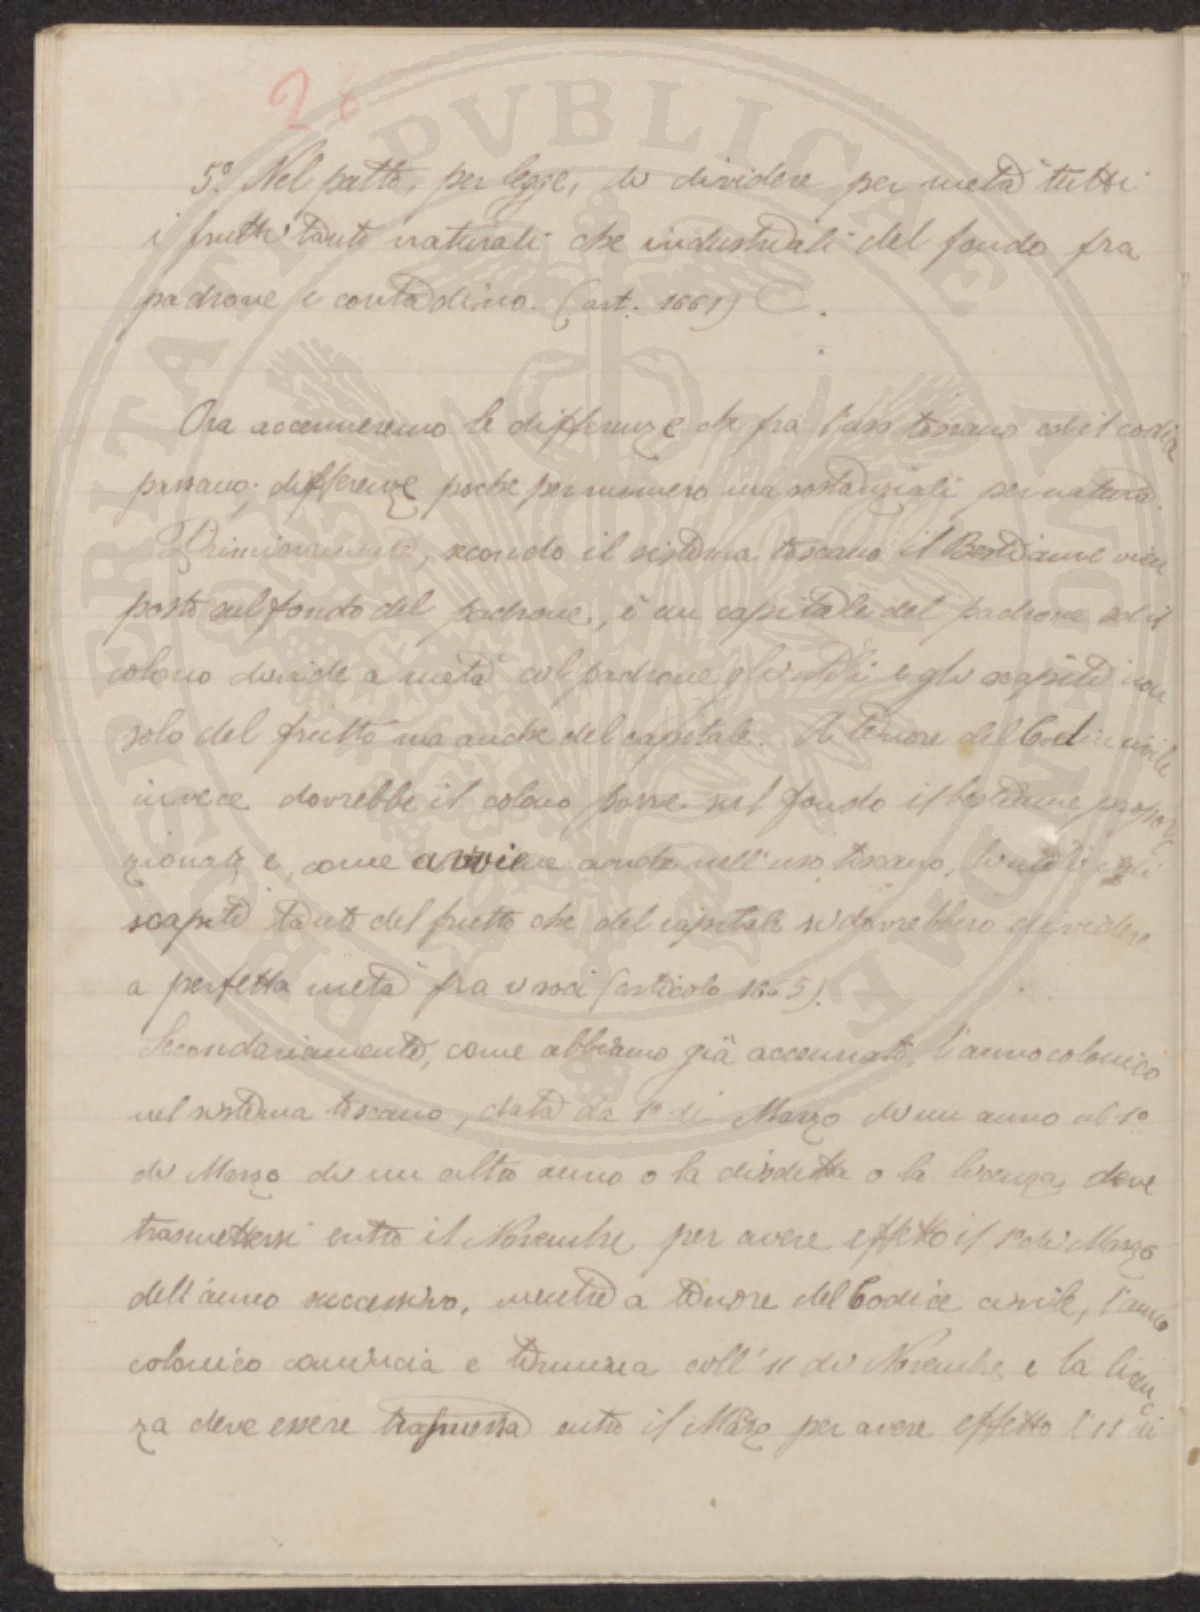 26
5.° Nel patto, per legge, di dividere per metà tutti
i frutti tanto naturali che industriali del fondo fra
padrone e contadino. (art. 1661)
Ora accenneremo le differenze che fra l'uso toscano ed il codice
passano; differenze poche per numero ma sostanziali per natura.
Primieramente, secondo il sistema toscano il Bestiame vien
posto sul fondo del padrone, è un capitale del padrone ed il
colono divide a metà col padrone gli utili e gli scapiti non
solo del frutto ma anche del capitale. A tenore del Codice civile
invece dovrebbe il colono porre sul fondo il bestiame propor
zionato e, come avviene anche nell'uso toscano, li utili e gli
scapiti tanto del frutto che del capitale si dovrebbero dividere
a perfetta metà fra i soci (articolo 1665).
Secondariamente, come abbiamo già accennato, l'anno colonico
nel sistema toscano, data da 1° di Marzo di un anno al 1°
di Marzo di un altro anno o la disdetta o la licenza deve
trasmettersi entro il Novembre per avere effetto il 1° di Marzo
dell'anno successivo, mentre a tenore del Codice civile, l'anno
colonico comincia e termina coll'11 di Novembre e la licen
za deve essere trasmessa entro il Marzo per avere effetto l'11 di
PROSPERITATI PVBLICAE AVGENDAE